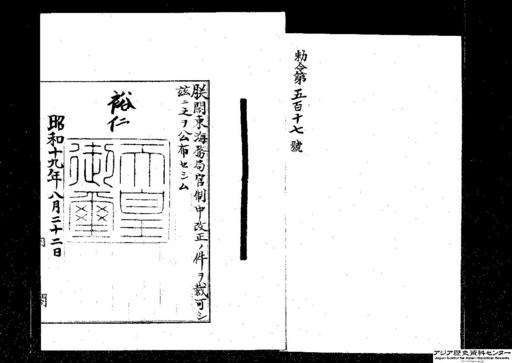 勅令第五百十七號
朕關東海務局官制中改正ノ件ヲ裁可シ
玆ニ之ヲ公布セシム
裕仁
天皇御璽
昭和十九年八月二十二日
内閣
アジア歴史資料センター
Japan Center for Asian Historical Records